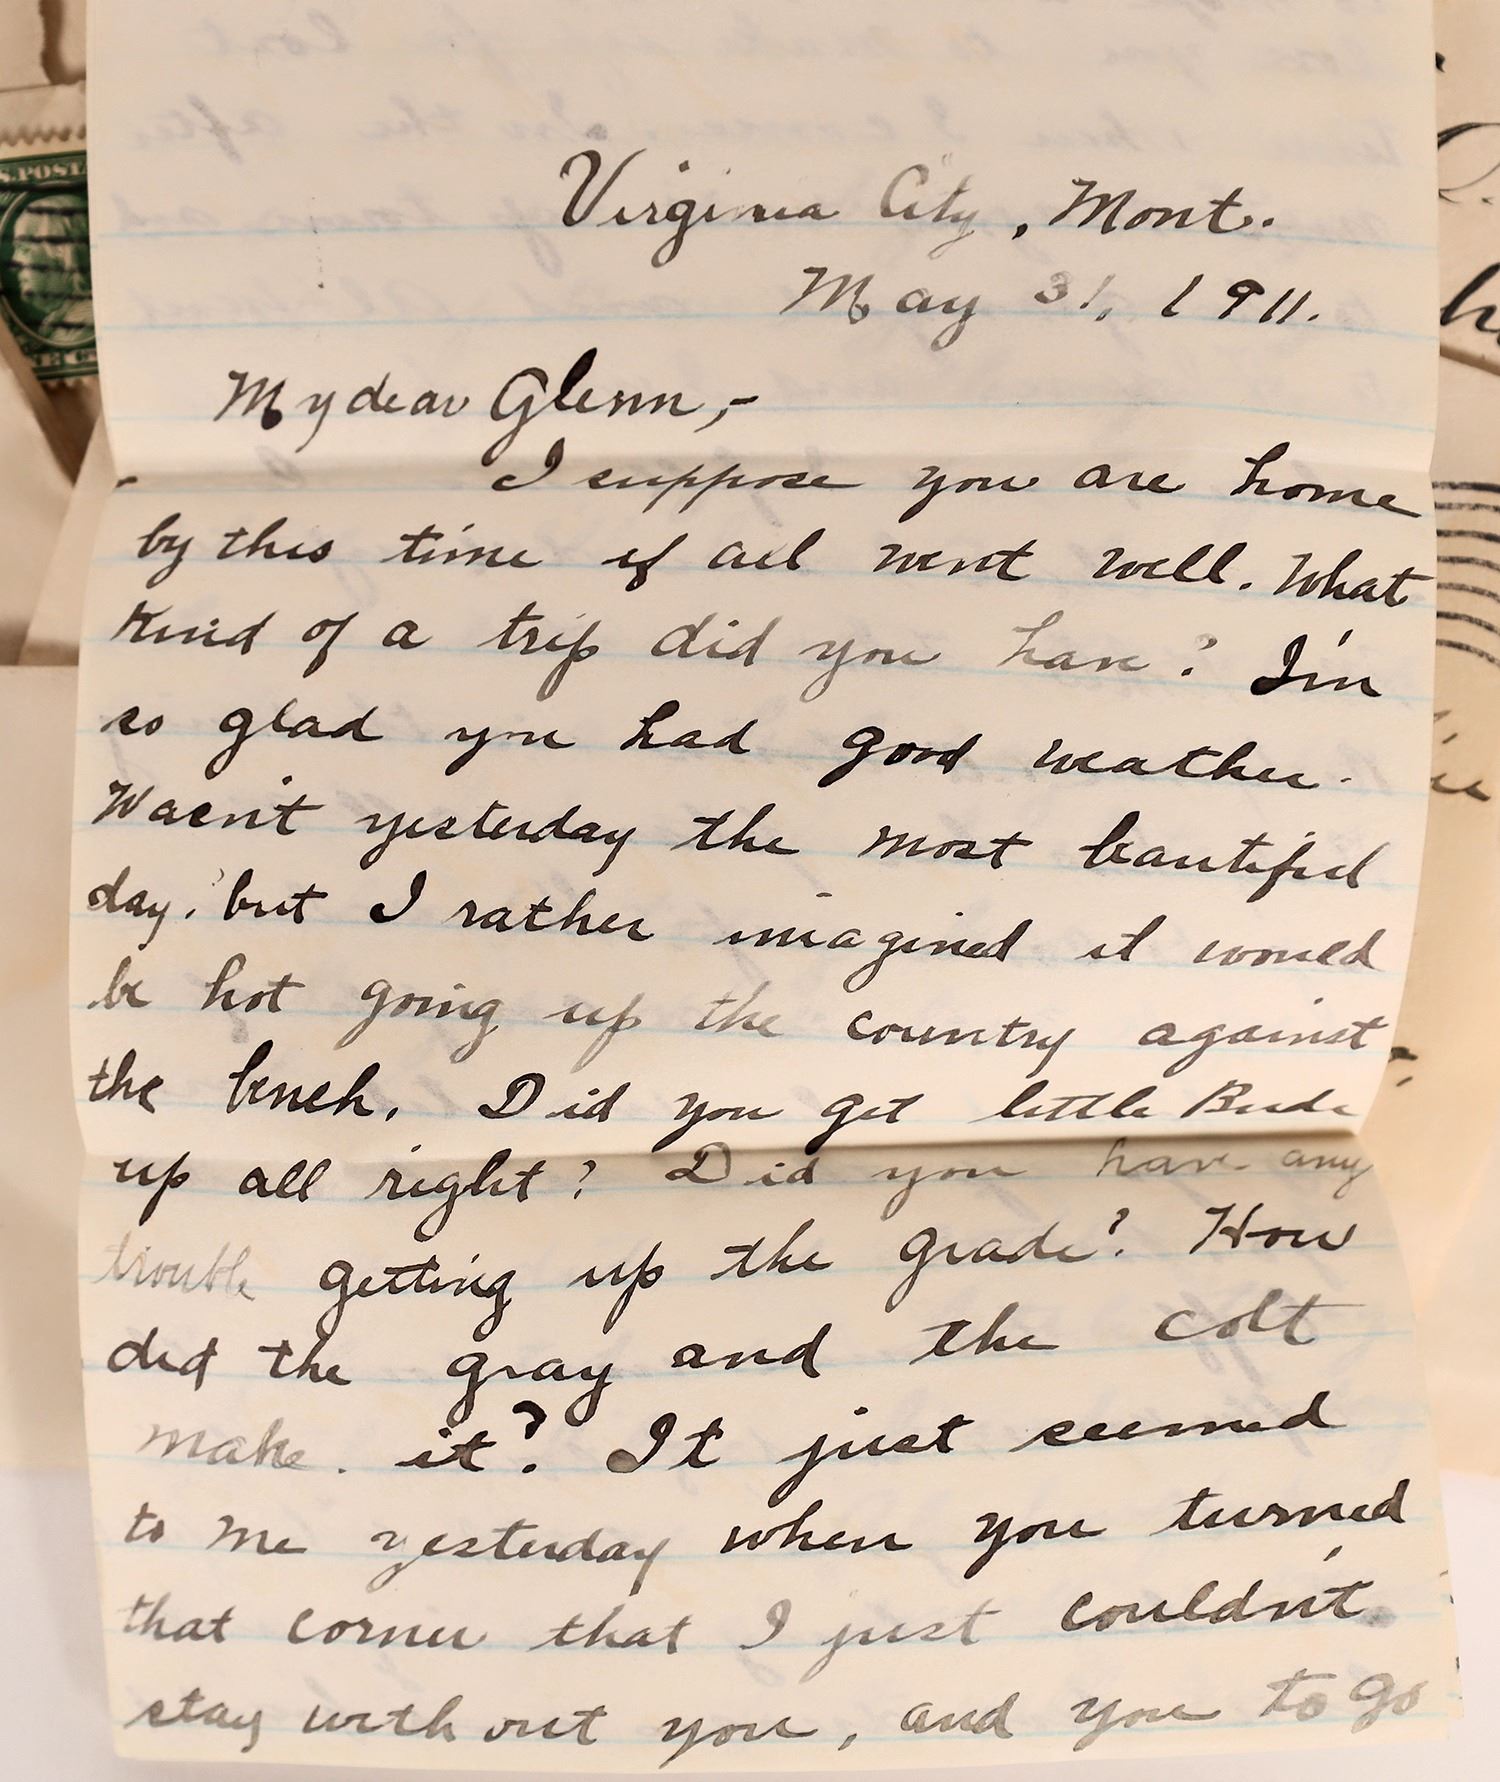 Virginia City, Mont.
May 31, 1911.
My dear Glenn,-
I suppose you are home
by this time if all went well. What
kind of a trip did you have? I'm
so glad you had good weather.
Wasn't yesterday the most beautiful
day? but I rather imagined it would
be hot going up the country against
the bench. Did you get little Bude
up all right? Did you have any
trouble getting up the grade? How
did the gray and the colt
make it? It just seemed
to me yesterday when you turned
that corner that I just couldn't
stay without you, and you to go
S. POSTA